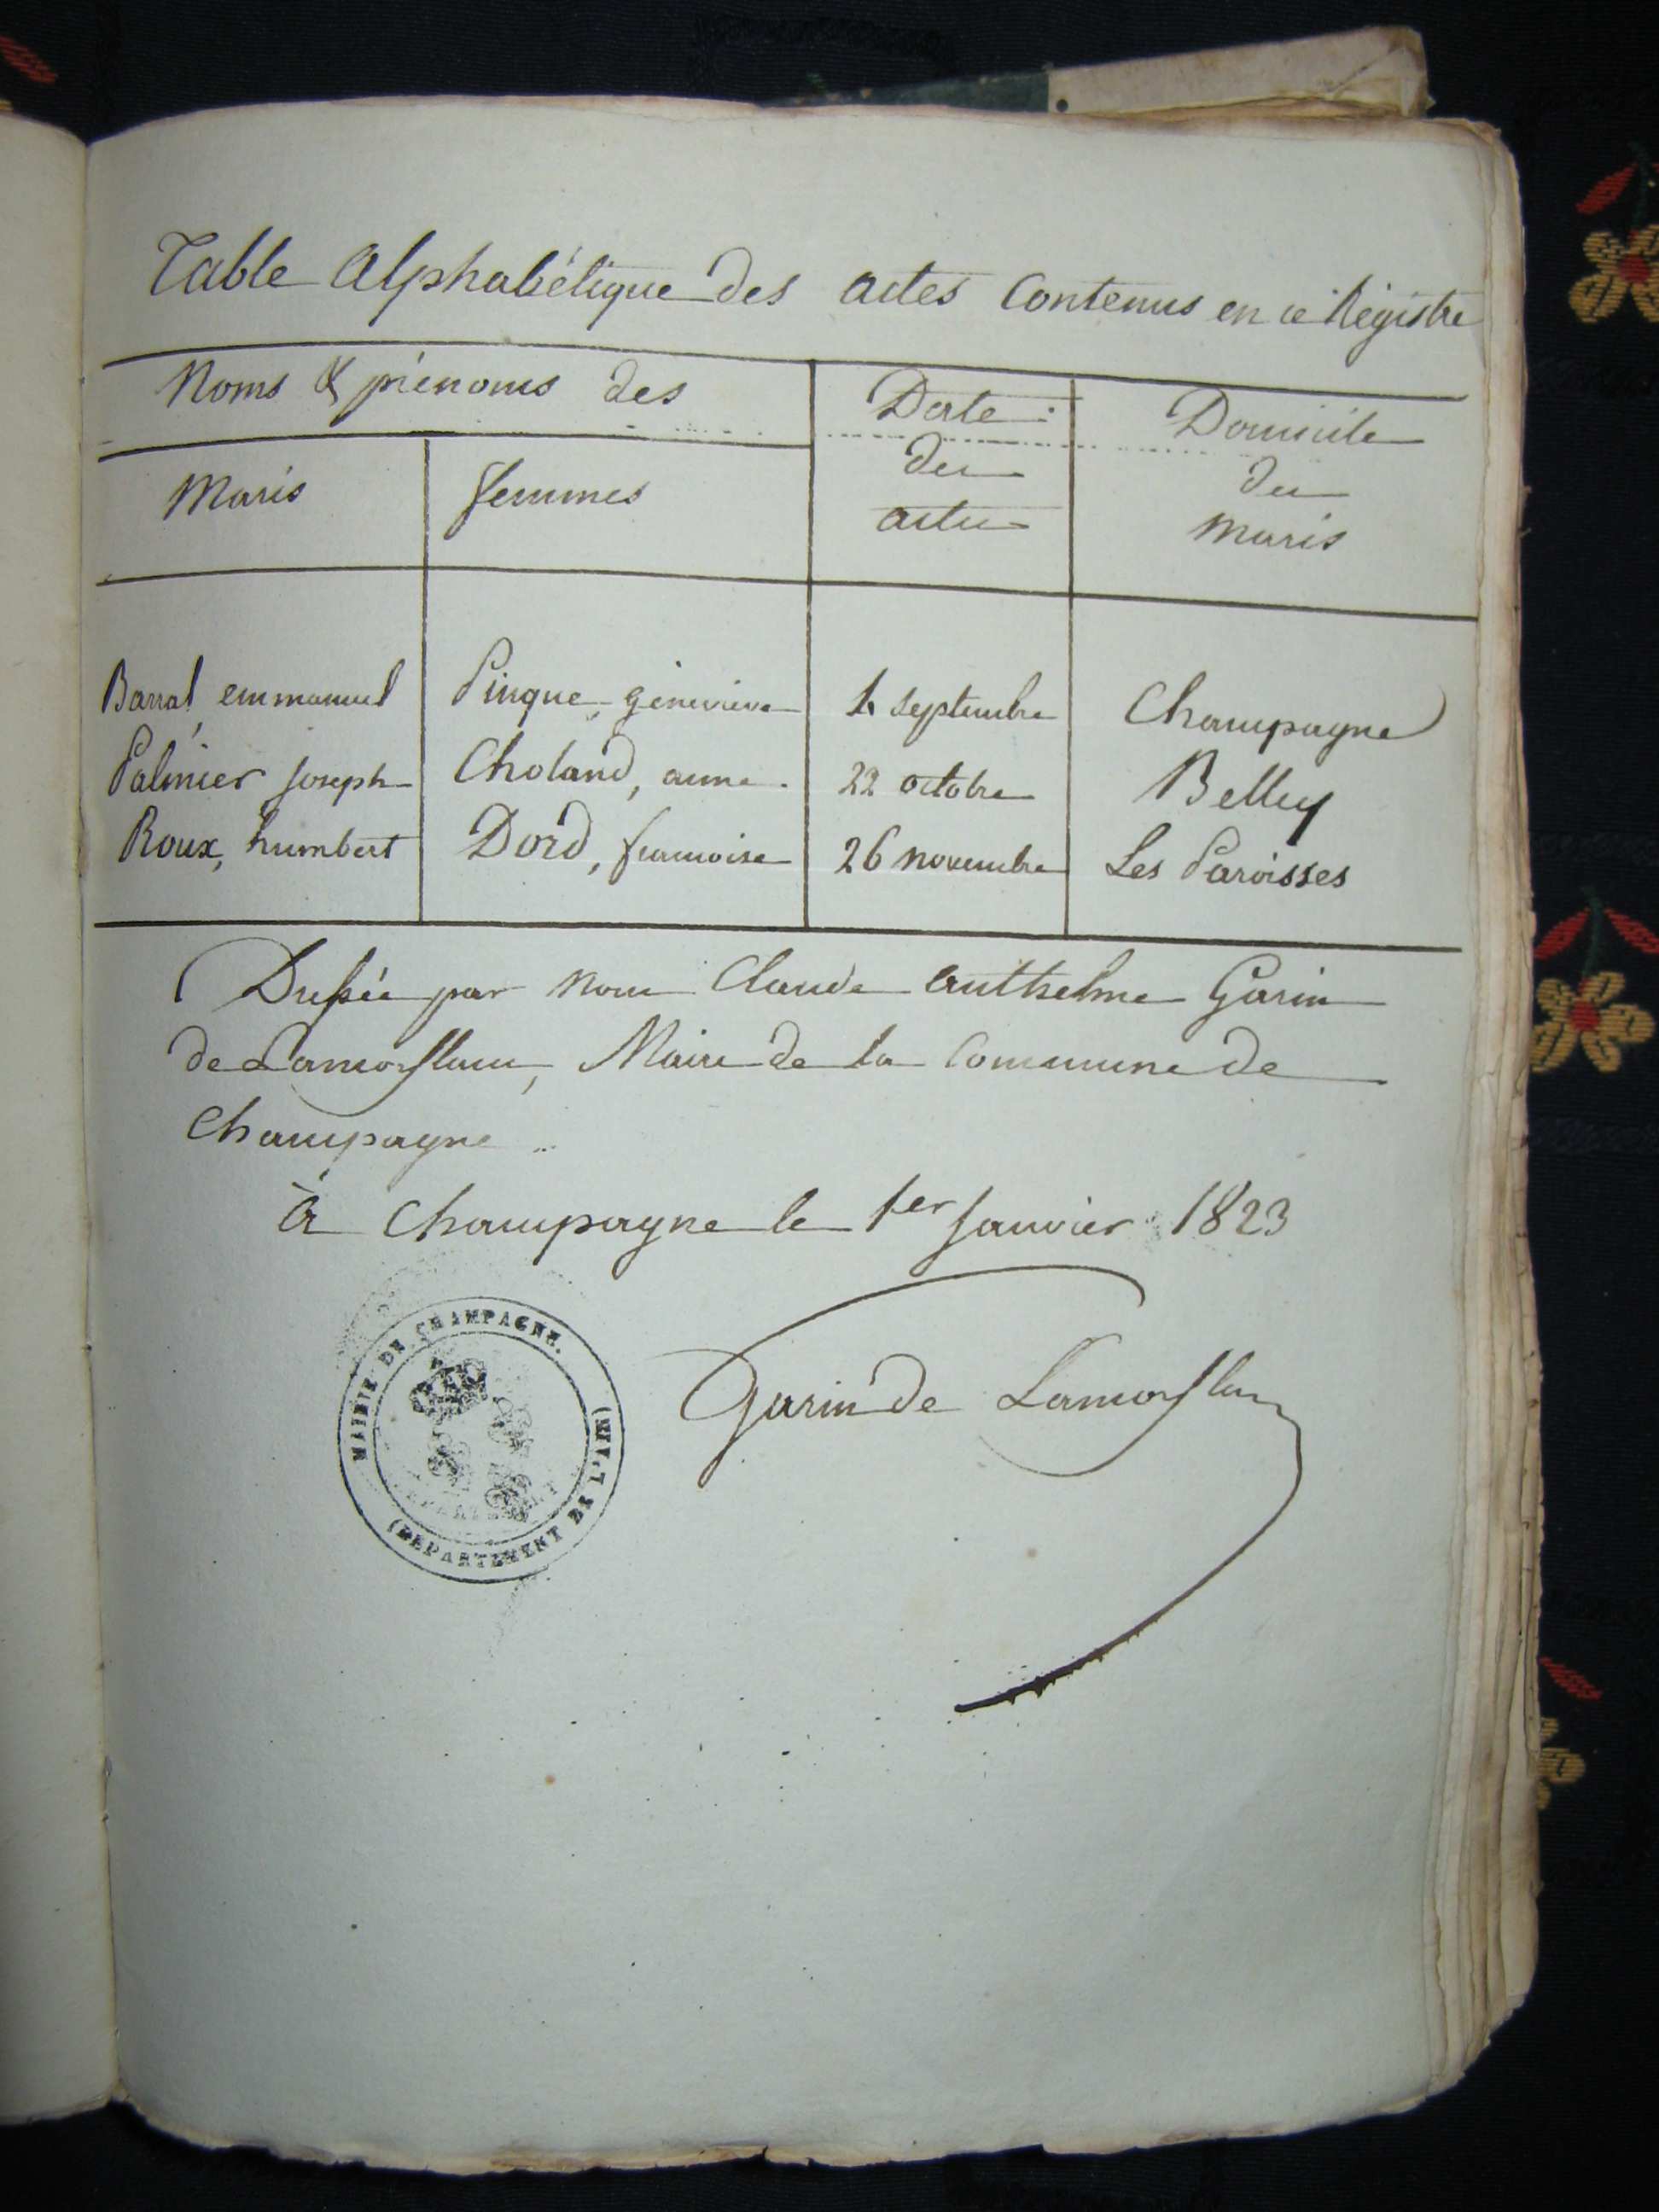 Table Alphabétique des actes Contenus en ce Régistre
Noms & prénoms des
Maris
femmes
Date
des
actes
Domicile
des
maris
Barral, emmanuel Pinque, génevieve 1 septembre Champagne
Palmier Joseph Choland, anne 22 octobre Belley
Roux, humbert Dord, francoise 26 novembre Les Paroisses
Dressée par nous Claude anthelme Garin
de Lamorflanc, Maire de la Commune de
Champagne
à Champagne le 1er Janvier 1823
MAIRIE DE CHAMPAGNE.
(DÉPARTEMENT DE L'AIN)
Garin de Lamorflanc